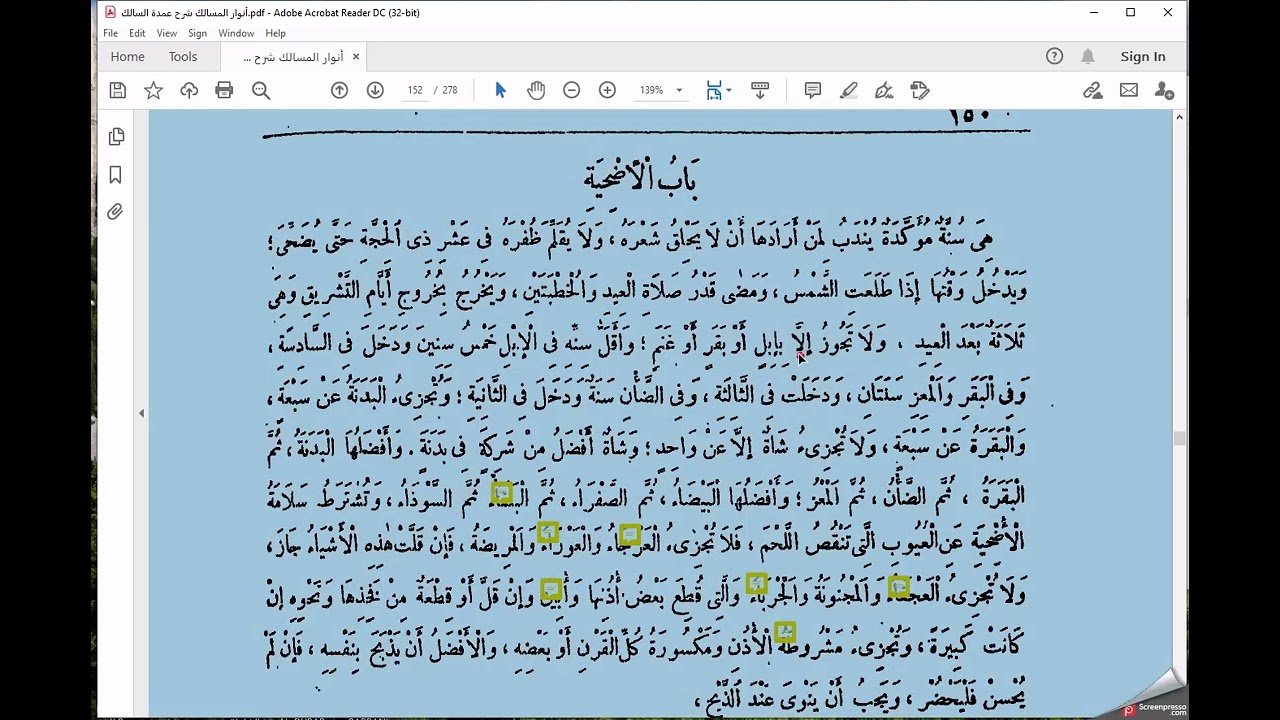 أنوار المسالك شرح عمدة السالك.pdf - Adobe Acrobat Reader DC (32-bit)
File Edit View Sign Window Help
Home Tools أنوار المسالك شرح ... × Sign In
152 / 278 139%
١٥٠
بَابُ الْأُضْحِيَةِ
هِىَ سُنَّةٌ مُؤَكَّدَةٌ يُنْدَبُ لِمَنْ أَرَادَهَا أَنْ لَا يَحْلِقَ شَعْرَهُ، وَلَا يُقَلِّمَ ظُفْرَهُ فِى عَشْرِ ذِى الْحِجَّةِ حَتَّى يُضَحِّىَ؛
وَيَدْخُلُ وَقْتُهَا إِذَا طَلَعَتِ الشَّمْسُ، وَمَضٰى قَدْرُ صَلَاةِ الْعِيدِ وَالْخُطْبَتَيْنِ، وَيَخْرُجُ بِخُرُوجِ أَيَّامِ التَّشْرِيقِ وَهِىَ
ثَلَاثَةٌ بَعْدَ الْعِيدِ . وَلَا تَجُوزُ إِلَّا بِإِبِلٍ أَوْ بَقَرٍ أَوْ غَنَمٍ؛ وَأَقَلُّ سِنِّهِ فِى الْإِبِلِ خَمْسُ سِنِينَ وَدَخَلَ فِى السَّادِسَةِ،
وَفِى الْبَقَرِ وَالْمَعْزِ سَنَتَانِ، وَدَخَلَتْ فِى الثَّالِثَةِ، وَفِى الضَّأْنِ سَنَةٌ وَدَخَلَ فِى الثَّانِيَةِ؛ وَتُجْزِىءُ الْبَدَنَةُ عَنْ سَبْعَةٍ،
وَالْبَقَرَةُ عَنْ سَبْعَةٍ، وَلَا تُجْزِىءُ شَاةٌ إِلَّا عَنْ وَاحِدٍ؛ وَشَاةٌ أَفْضَلُ مِنْ شَرِكَةٍ فِى بَدَنَةٍ. وَأَفْضَلُهَا الْبَدَنَةُ، ثُمَّ
الْبَقَرَةُ، ثُمَّ الضَّأْنُ، ثُمَّ الْمَعْزُ؛ وَأَفْضَلُهَا الْبَيْضَاءُ، ثُمَّ الصَّفْرَاءُ، ثُمَّ ثُمَّ السَّوْدَاءُ، وَتُشْتَرَطُ سَلَامَةُ
الْأُضْحِيَةِ عَنِ الْعُيُوبِ الَّتِى تَنْقُصُ اللَّحْمَ، فَلَا تُجْزِىءُ الْعَرْجَاءُ وَالْعَوْرَاءُ وَالْمَرِيضَةُ، فَإِنْ قَلَّتْ هٰذِهِ الْأَشْيَاءُ جَازَ،
وَلَا تُجْزِىءُ الْعَجْفَاءُ وَالْمَجْنُونَةُ وَالْجَرْبَاءُ وَالَّتِى قُطِعَ بَعْضُ أُذُنِهَا وَأُبِينَ وَإِنْ قَلَّ أَوْ قِطْعَةٌ مِنْ فَخِذِهَا وَنَحْوِهِ إِنْ
كَانَتْ كَبِيرَةً، وَتُجْزِىءُ مَشْرُوطَةُ الْأُذُنِ وَمَكْسُورَةُ كُلِّ الْقَرْنِ أَوْ بَعْضِهِ، وَالْأَفْضَلُ أَنْ يَذْبَحَ بِنَفْسِهِ، فَإِنْ لَمْ
يُحْسِنْ فَلْيَحْضُرْ، وَيَجِبُ أَنْ يَنْوِىَ عِنْدَ الذَّبْحِ،
Screenpresso
.com